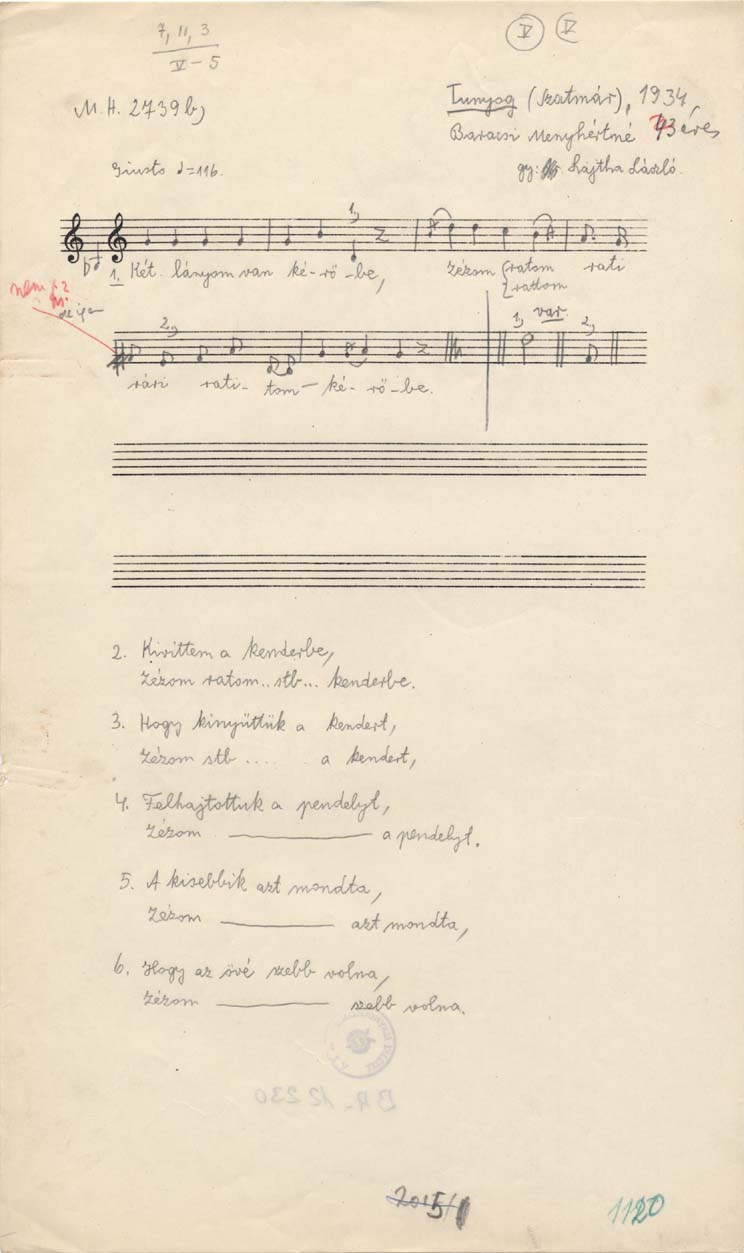 7, 11, 3
V - 5
V V
M. H. 2739 b,
Tunyog (Szatmár), 1934,
Baracsi Menyhértné 43 éves
gy: Lajtha László.
Giusto = 116.
1,
1. Két lányom van ké-rő-be, Zézom ratom rati
rattom
nem
2, 1, var. 2,
rári rati-tom-ké-rő-be.
2. Kivittem a kenderbe,
Zézom ratom.. stb... kenderbe.
3. Hogy kinyüttük a kendert,
Zézom stb .... a kendert,
4. Felhajtottuk a pendelyt,
Zézom ——— a pendelyt.
5. A kisebbik azt mondta,
Zézom ——— azt mondta,
6. Hogy az övé szebb volna,
Zézom ——— szebb volna.
BR-12230
2015/1
1120